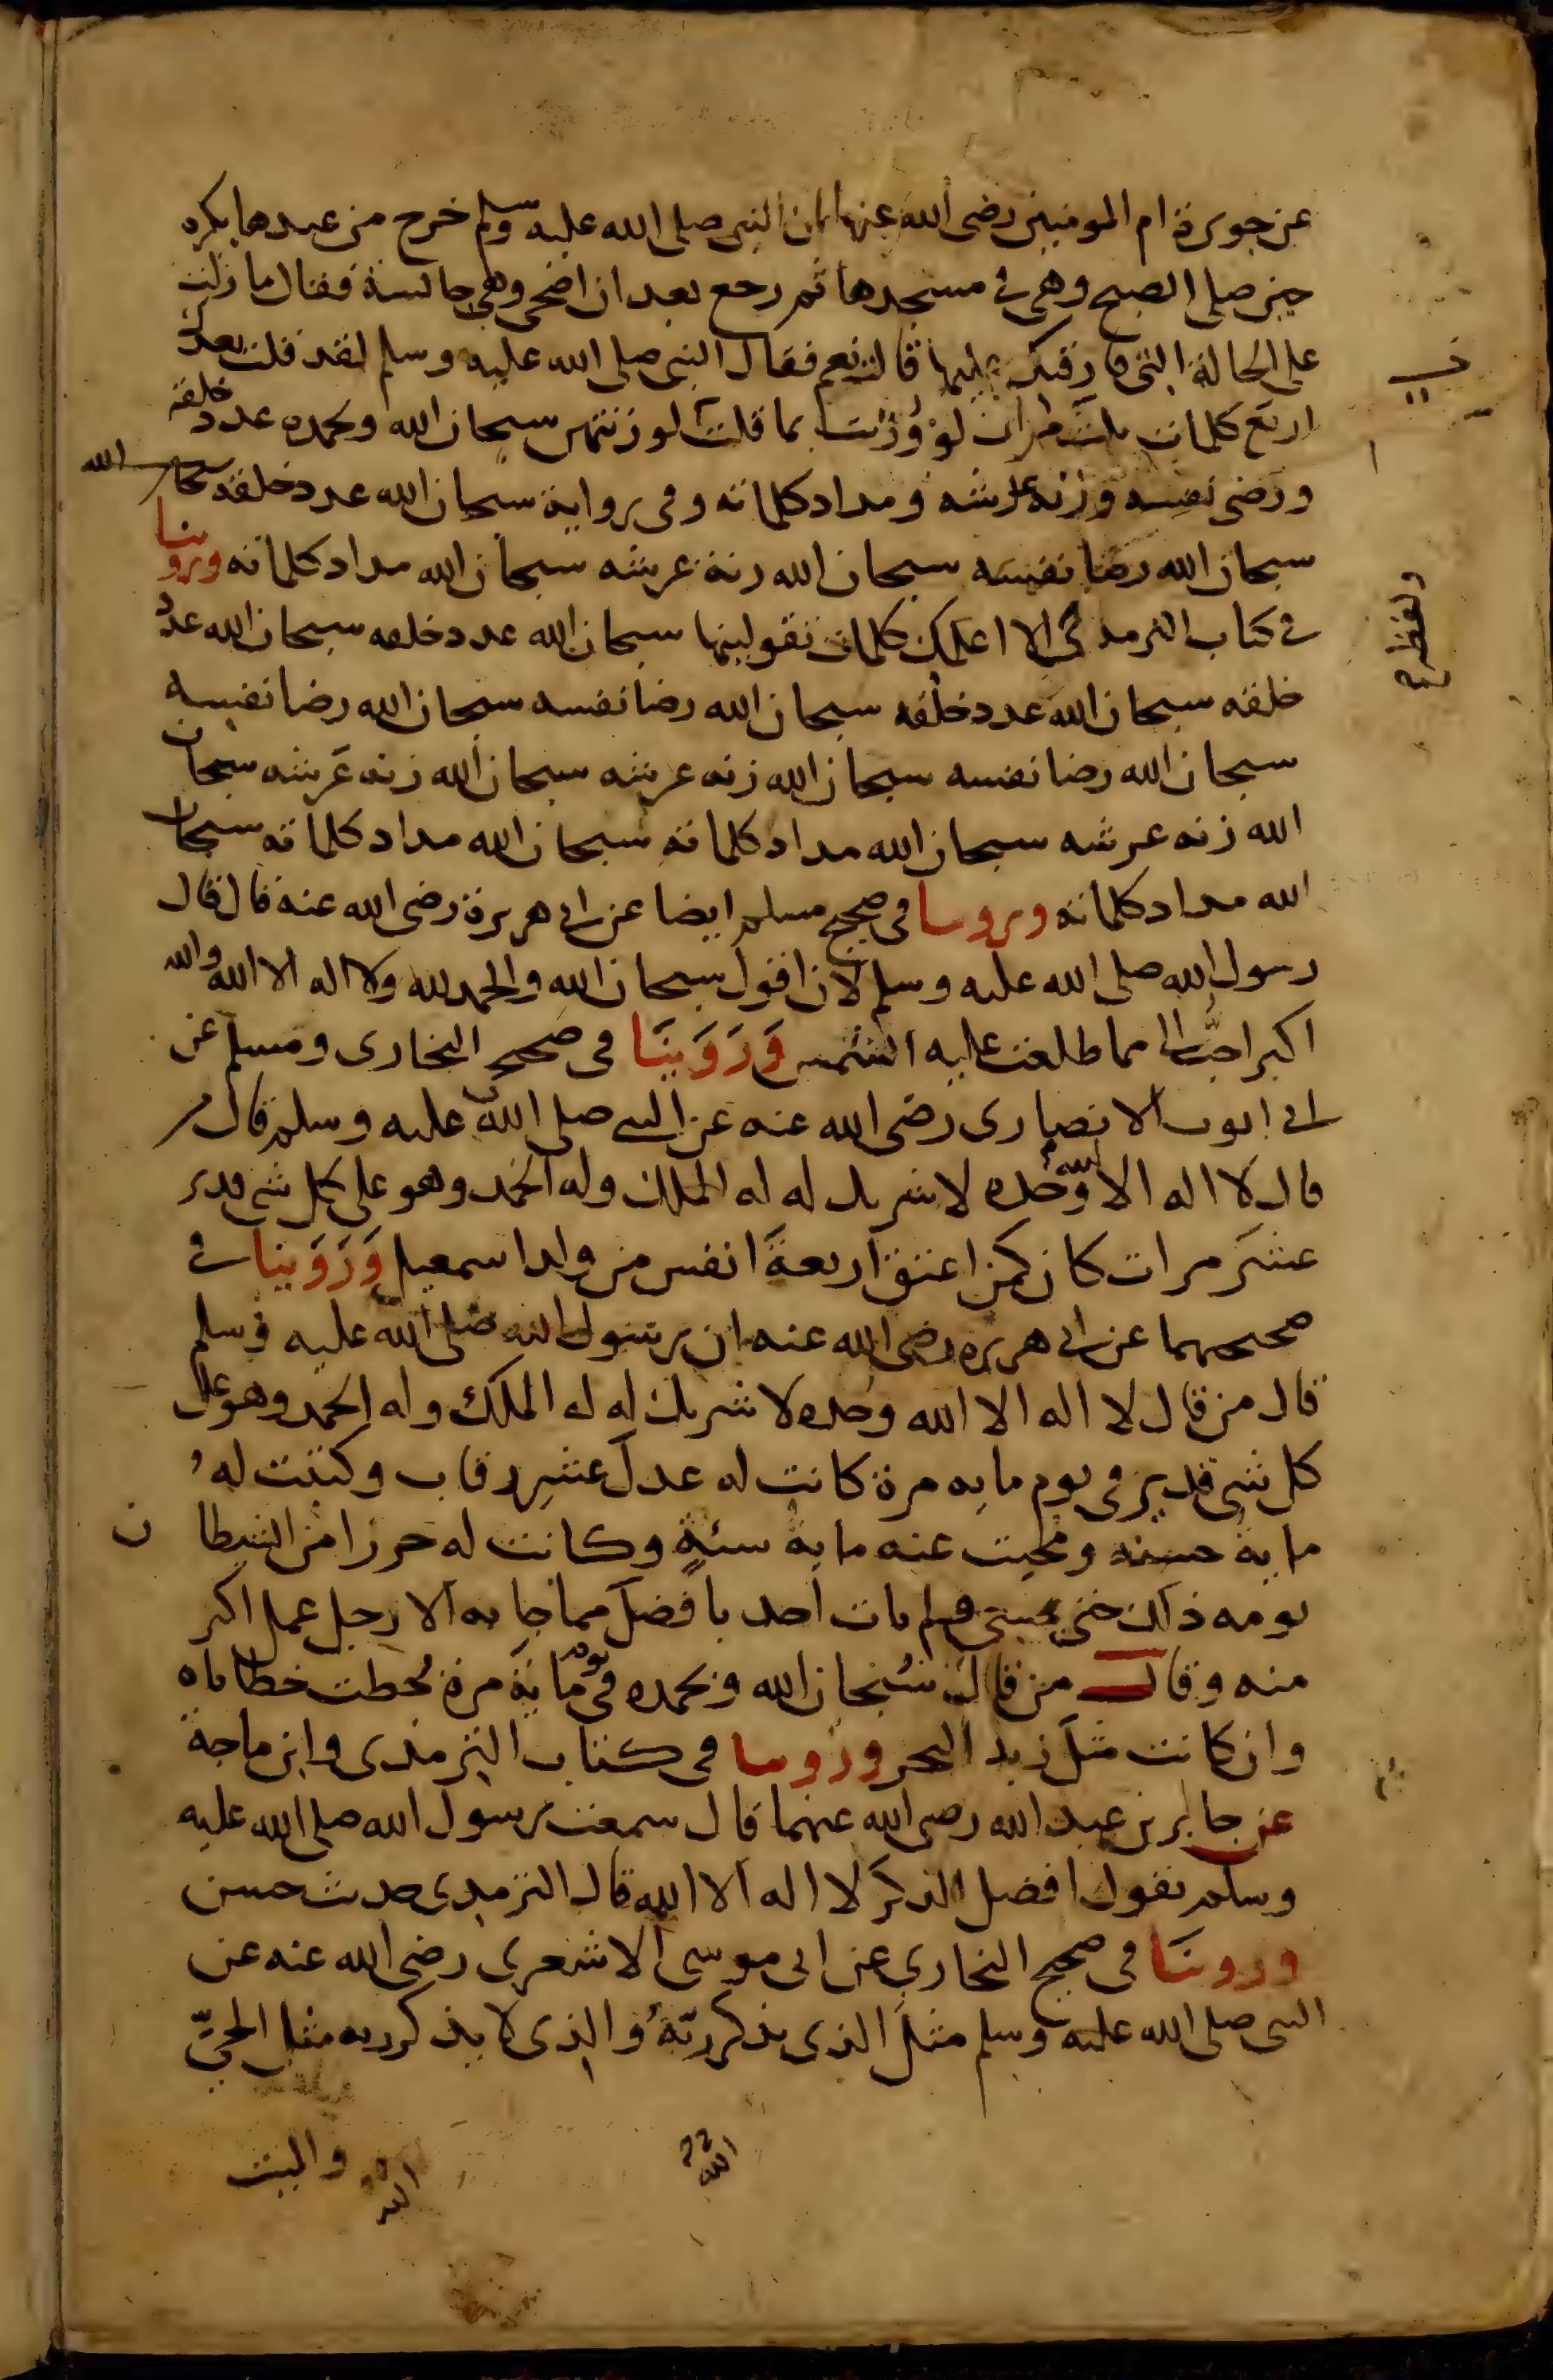 عن جويرة ام المومنين رضى الله عنها ان النبى صلى الله عليه وسلم خرج من عندها بكره
حين صلى الصبح وهى فى مسجدها ثم رجع بعد ان اضحى وهى جالسة فقال ما زلت
على الحالة التى فارقتك عليها قالت نعم فقال النبى صلى الله عليه وسلم لقد قلت بعدك
اربع كلمات ثلث مرات لو وُزنت بما قلت لوزنتهن سبحان الله وبحمده عدد خلقه
ورضى نفسه وزنه عرشه ومداد كلماته وفى رواية سبحان الله عدد خلقه سبحان الله
سبحان الله رضا نفسه سبحان الله زنة عرشه سبحان الله مداد كلماته وروينا
فى كتاب الترمذى الا اعلمك كلمات تقولينها سبحان الله عدد خلقه سبحان الله عدد
خلقه سبحان الله عدد خلقه سبحان الله رضا نفسه سبحان الله رضا نفسه
سبحان الله رضا نفسه سبحان الله زنه عرشه سبحان الله زنه عرشه سبحان
الله زنه عرشه سبحان الله مداد كلماته سبحان الله مداد كلماته سبحان
الله مداد كلماته وروينا فى صحيح مسلم ايضا عن ابى هريرة رضى الله عنه قال قال
رسول الله صلى الله عليه وسلم لان اقول سبحان الله والحمد لله ولا اله الا الله والله
اكبر احبُّ الى مما طلعت عليه الشمس وَرَوَينَا فى صحيح البخارى ومسلم عن
ابى ايوب الانصارى رضى الله عنه عن النبى صلى الله عليه وسلم قال من
قال لا اله الا الله وحده لا شريك له له الملك وله الحمد وهو على كل شى قدير
عشر مرات كان كمن اعتق اربعة انفس من ولد اسمعيل وَرَوَينا فى
صحيحهما عن ابى هريره رضى الله عنه ان رسول الله صلى الله عليه وسلم
قال من قال لا اله الا الله وحده لا شريك له له الملك وله الحمد وهو على
كل شى قدير فى يوم مايه مرة كانت له عدل عشر رقاب وكتبت لهُ
مايةُ حسنه ومحيت عنه مايه سئةٍ وكانت له حرزا من الشيطان
يومه ذلك حتى يمسى ولم يات احد بافضل مما جا به الا رجل عمل اكبر
منه وقال من قال سُبحان الله وبحمده فى يوم ماية مرة حُطت خطاياه
وان كانت مثل زبد البحر وروينا فى كتاب الترمذى وابن ماجة
عن جابر بن عبد الله رضى الله عنهما قال سمعت رسول الله صلى الله عليه
وسلم يقول افضل الذكر لا اله الا الله قال الترمذى حديث حسن
وروينَا فى صحيح البخارى عن ابى موسى الاشعرى رضى الله عنه عن
النبى صلى الله عليه وسلم مثل الذى يذكر ربّهُ والذى لا يذكر ربه مثل الحىّ
والميت